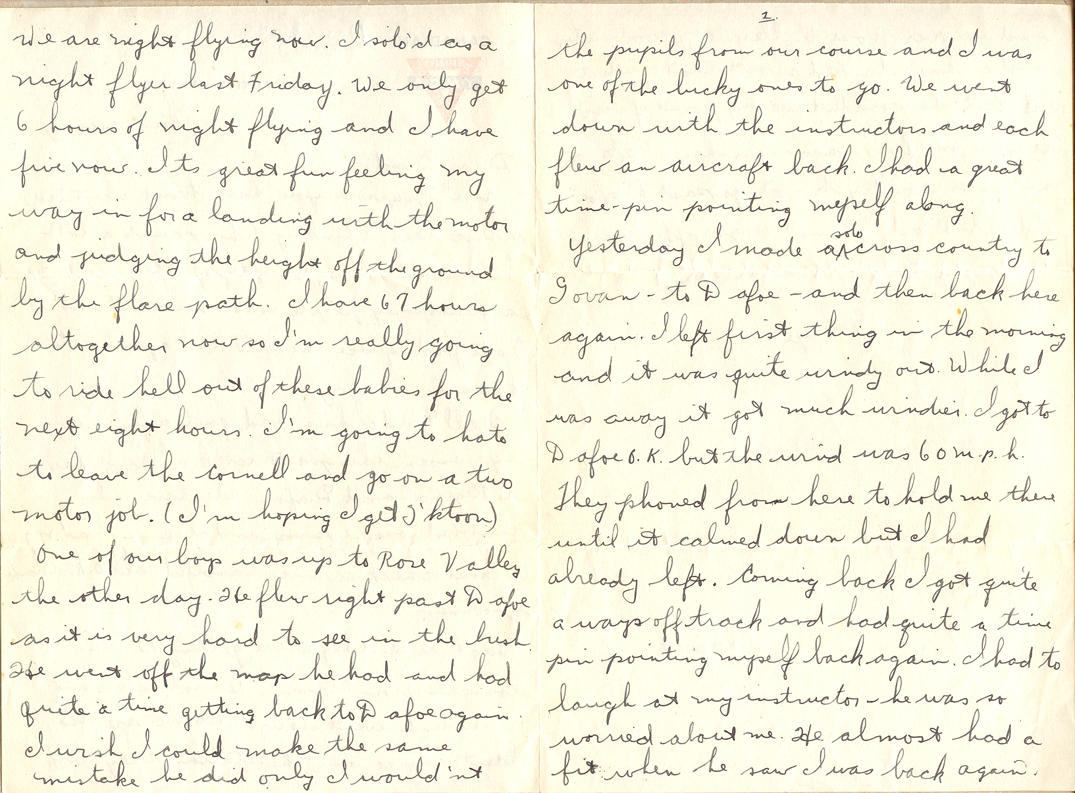 We are night flying now. I solo'd as a
night flyer last Friday. We only get
6 hours of night flying and I have
five now. Its great fun feeling my
way in for a landing with the motor
and judging the height off the ground
by the flare path. I have 67 hours
altogether now so I'm really going
to ride hell out of these babies for the
next eight hours. I'm going to hate
to leave the Cornell and go on a two
motor job. (I'm hoping I get S'ktoon)
One of our boys was up to Rose Valley
the other day. He flew right past Dafoe
as it is very hard to see in the bush
He went off the map he had and had
quite a time getting back to Dafoe again.
I wish I could make the same
mistake he did only I would'nt
2.
the pupils from our course and I was
one of the lucky ones to go. We went
down with the instructors and each
flew an aircraft back. I had a great
time-pin pointing myself along.
Yesterday I made a solo cross country to
Govan - to Dafoe - and then back here
again. I left first thing in the morning
and it was quite windy out. While I
was away it got much windier. I got to
Dafoe O.K. but the wind was 60 m.p.h.
They phoned from here to hold me there
until it calmed down but I had
already left. Coming back I got quite
a ways off track and had quite a time
pin pointing myself back again. I had to
laugh at my instructor - he was so
worried about me. He almost had a
fit when he saw I was back again.